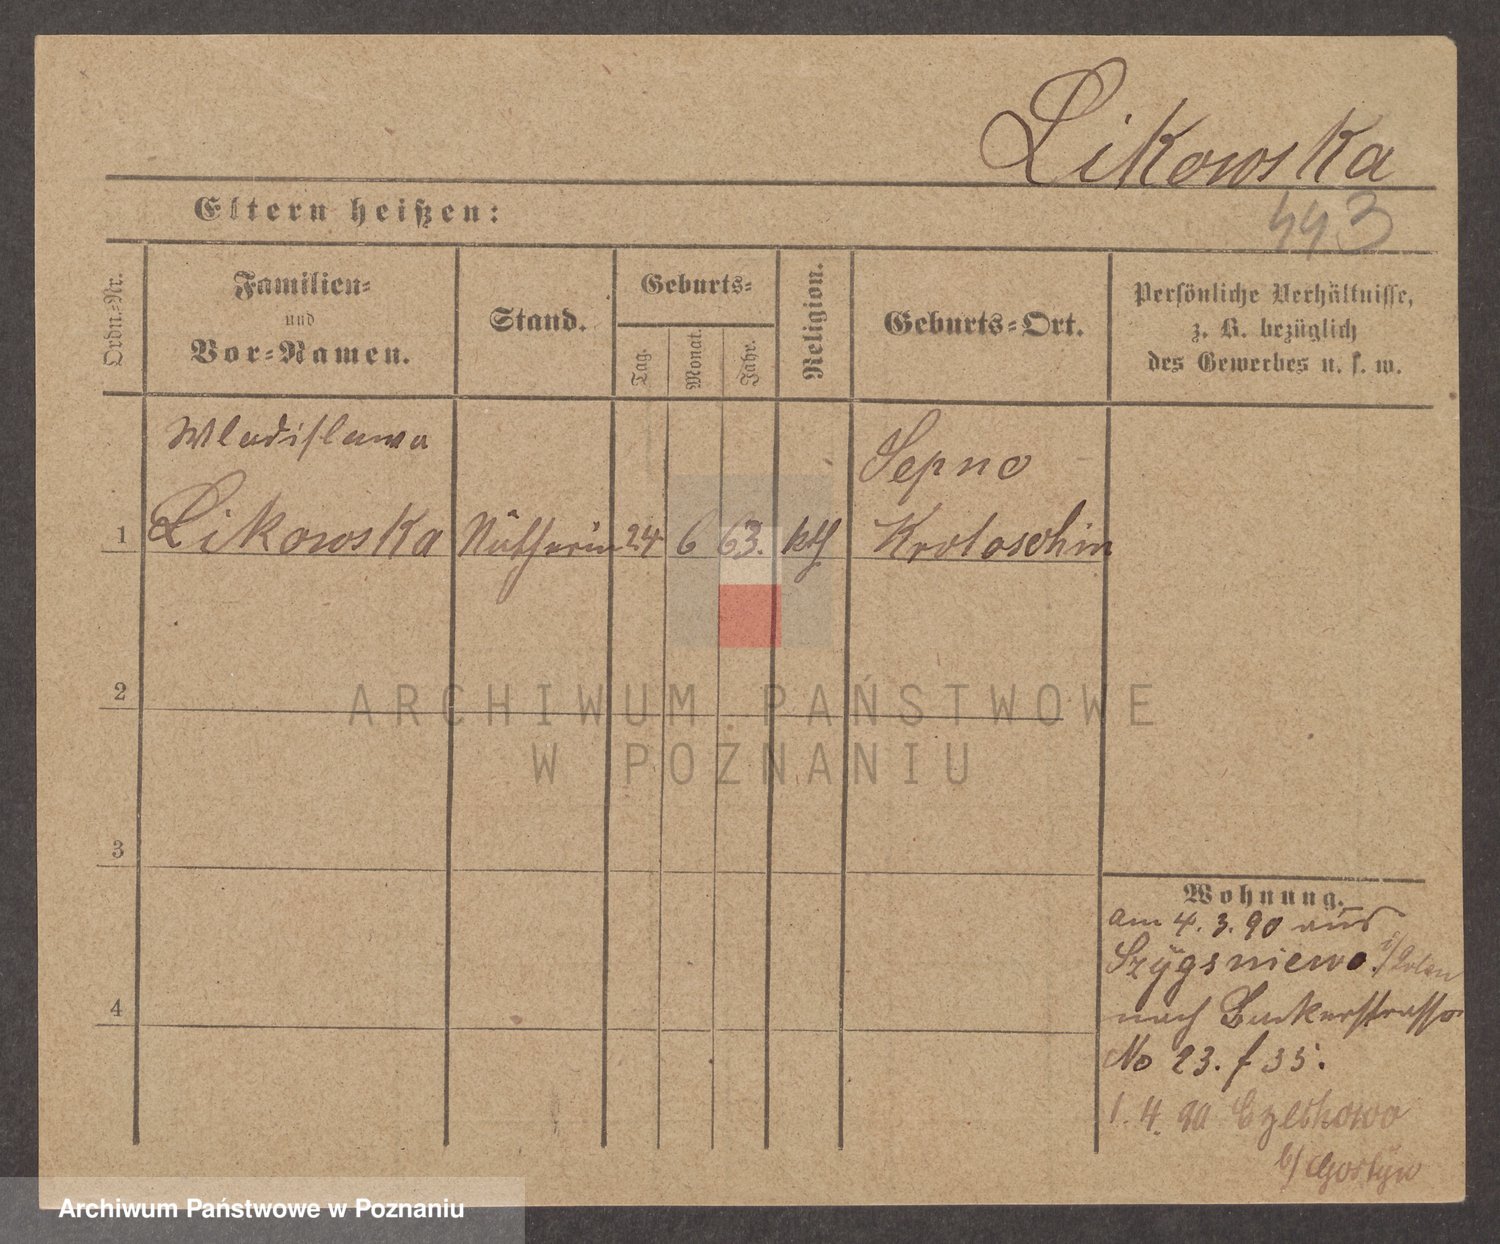 Likowska
Eltern heißen:
443
Ordn.-Nr.
Familien-
und
Vor-Namen.
Stand.
Geburts-
Tag.
Monat.
Jahr.
Religion.
Geburts-Ort.
Persönliche Verhältnisse,
z. B. bezüglich
des Gewerbes u. s. w.
Wladislawa
Sepno
1 Likowska 24 6 63. kth Krotoschin
2
3
4
Wohnung.
am 4. 3. 90 aus
nach
No 23. f 35.
1. 4. 90
b/ Gostyn
ARCHIWUM PAŃSTWOWE
W POZNANIU
Archiwum Państwowe w Poznaniu